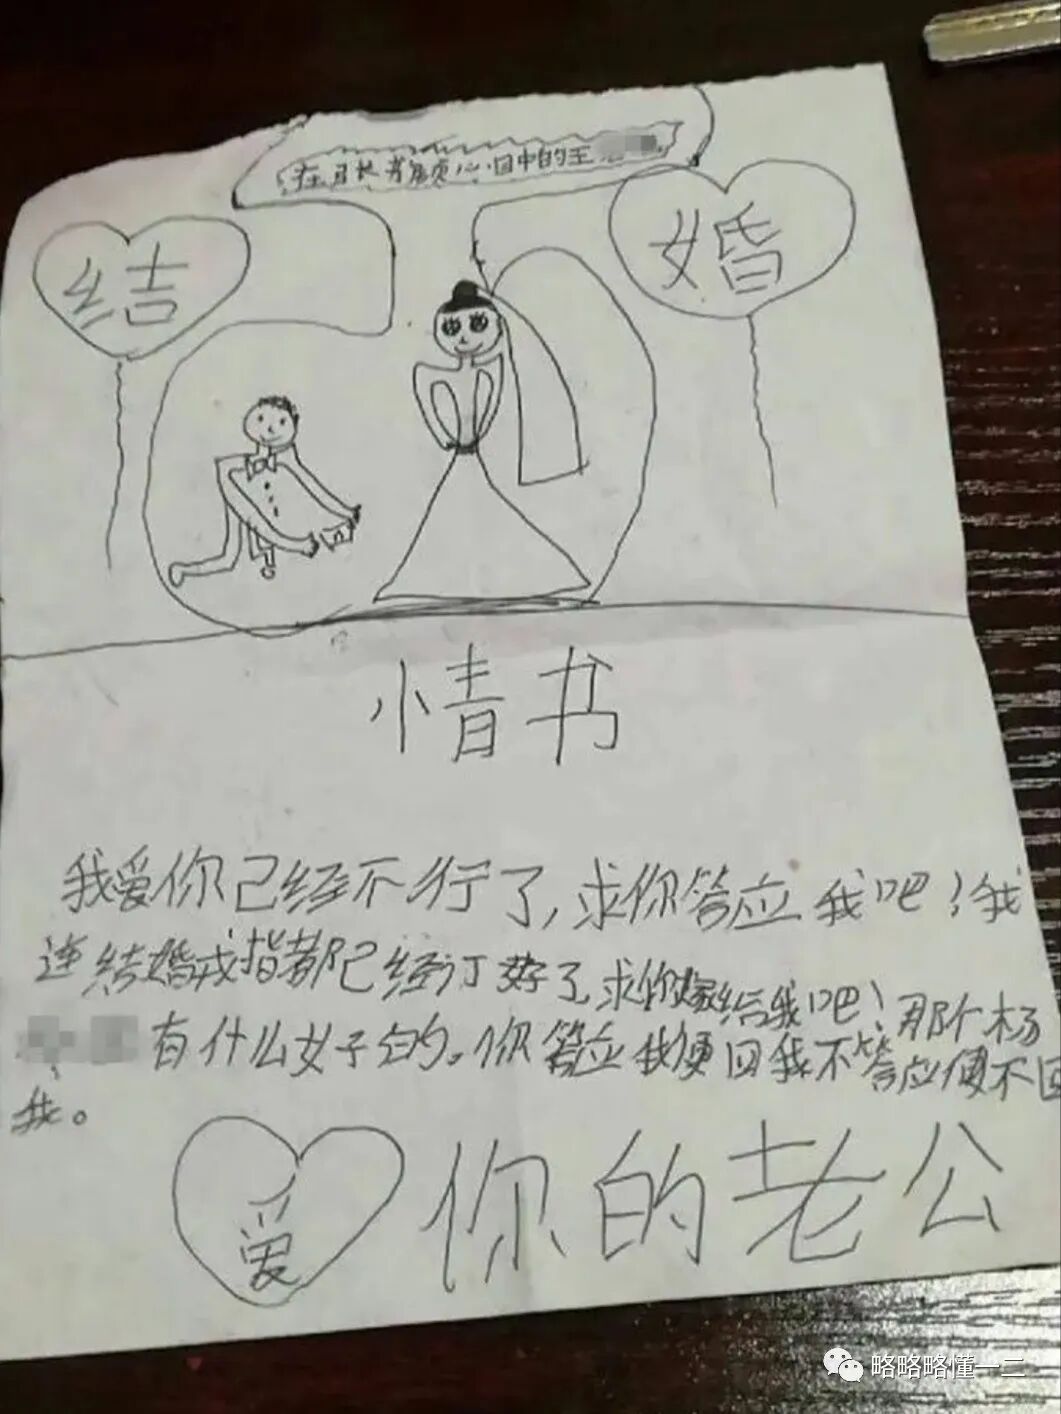 心目中的王
结 婚
情书
我爱你已经不行了,求你答应我吧!我
连结婚戒指都已经订好了,求你嫁给我吧!那个杨
有什么女子的。你答应我便回我不答应便不回
我。
爱 你的老公
略略略懂一二